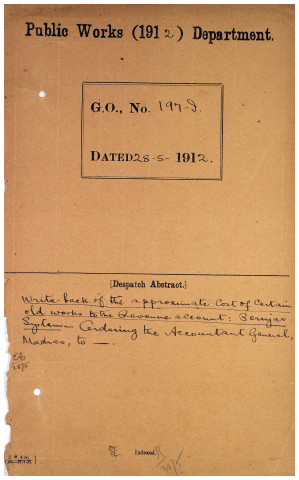 Public Works (1912) Department.
G.O., No. 197-I.
DATED 28-5-1912.
[Despatch Abstract.]
Write-back of the approximate cost of certain
old works to the Revenue account: Periyar
System - Ordering the Accountant General,
Madras, to —.
28/5
Indexed.